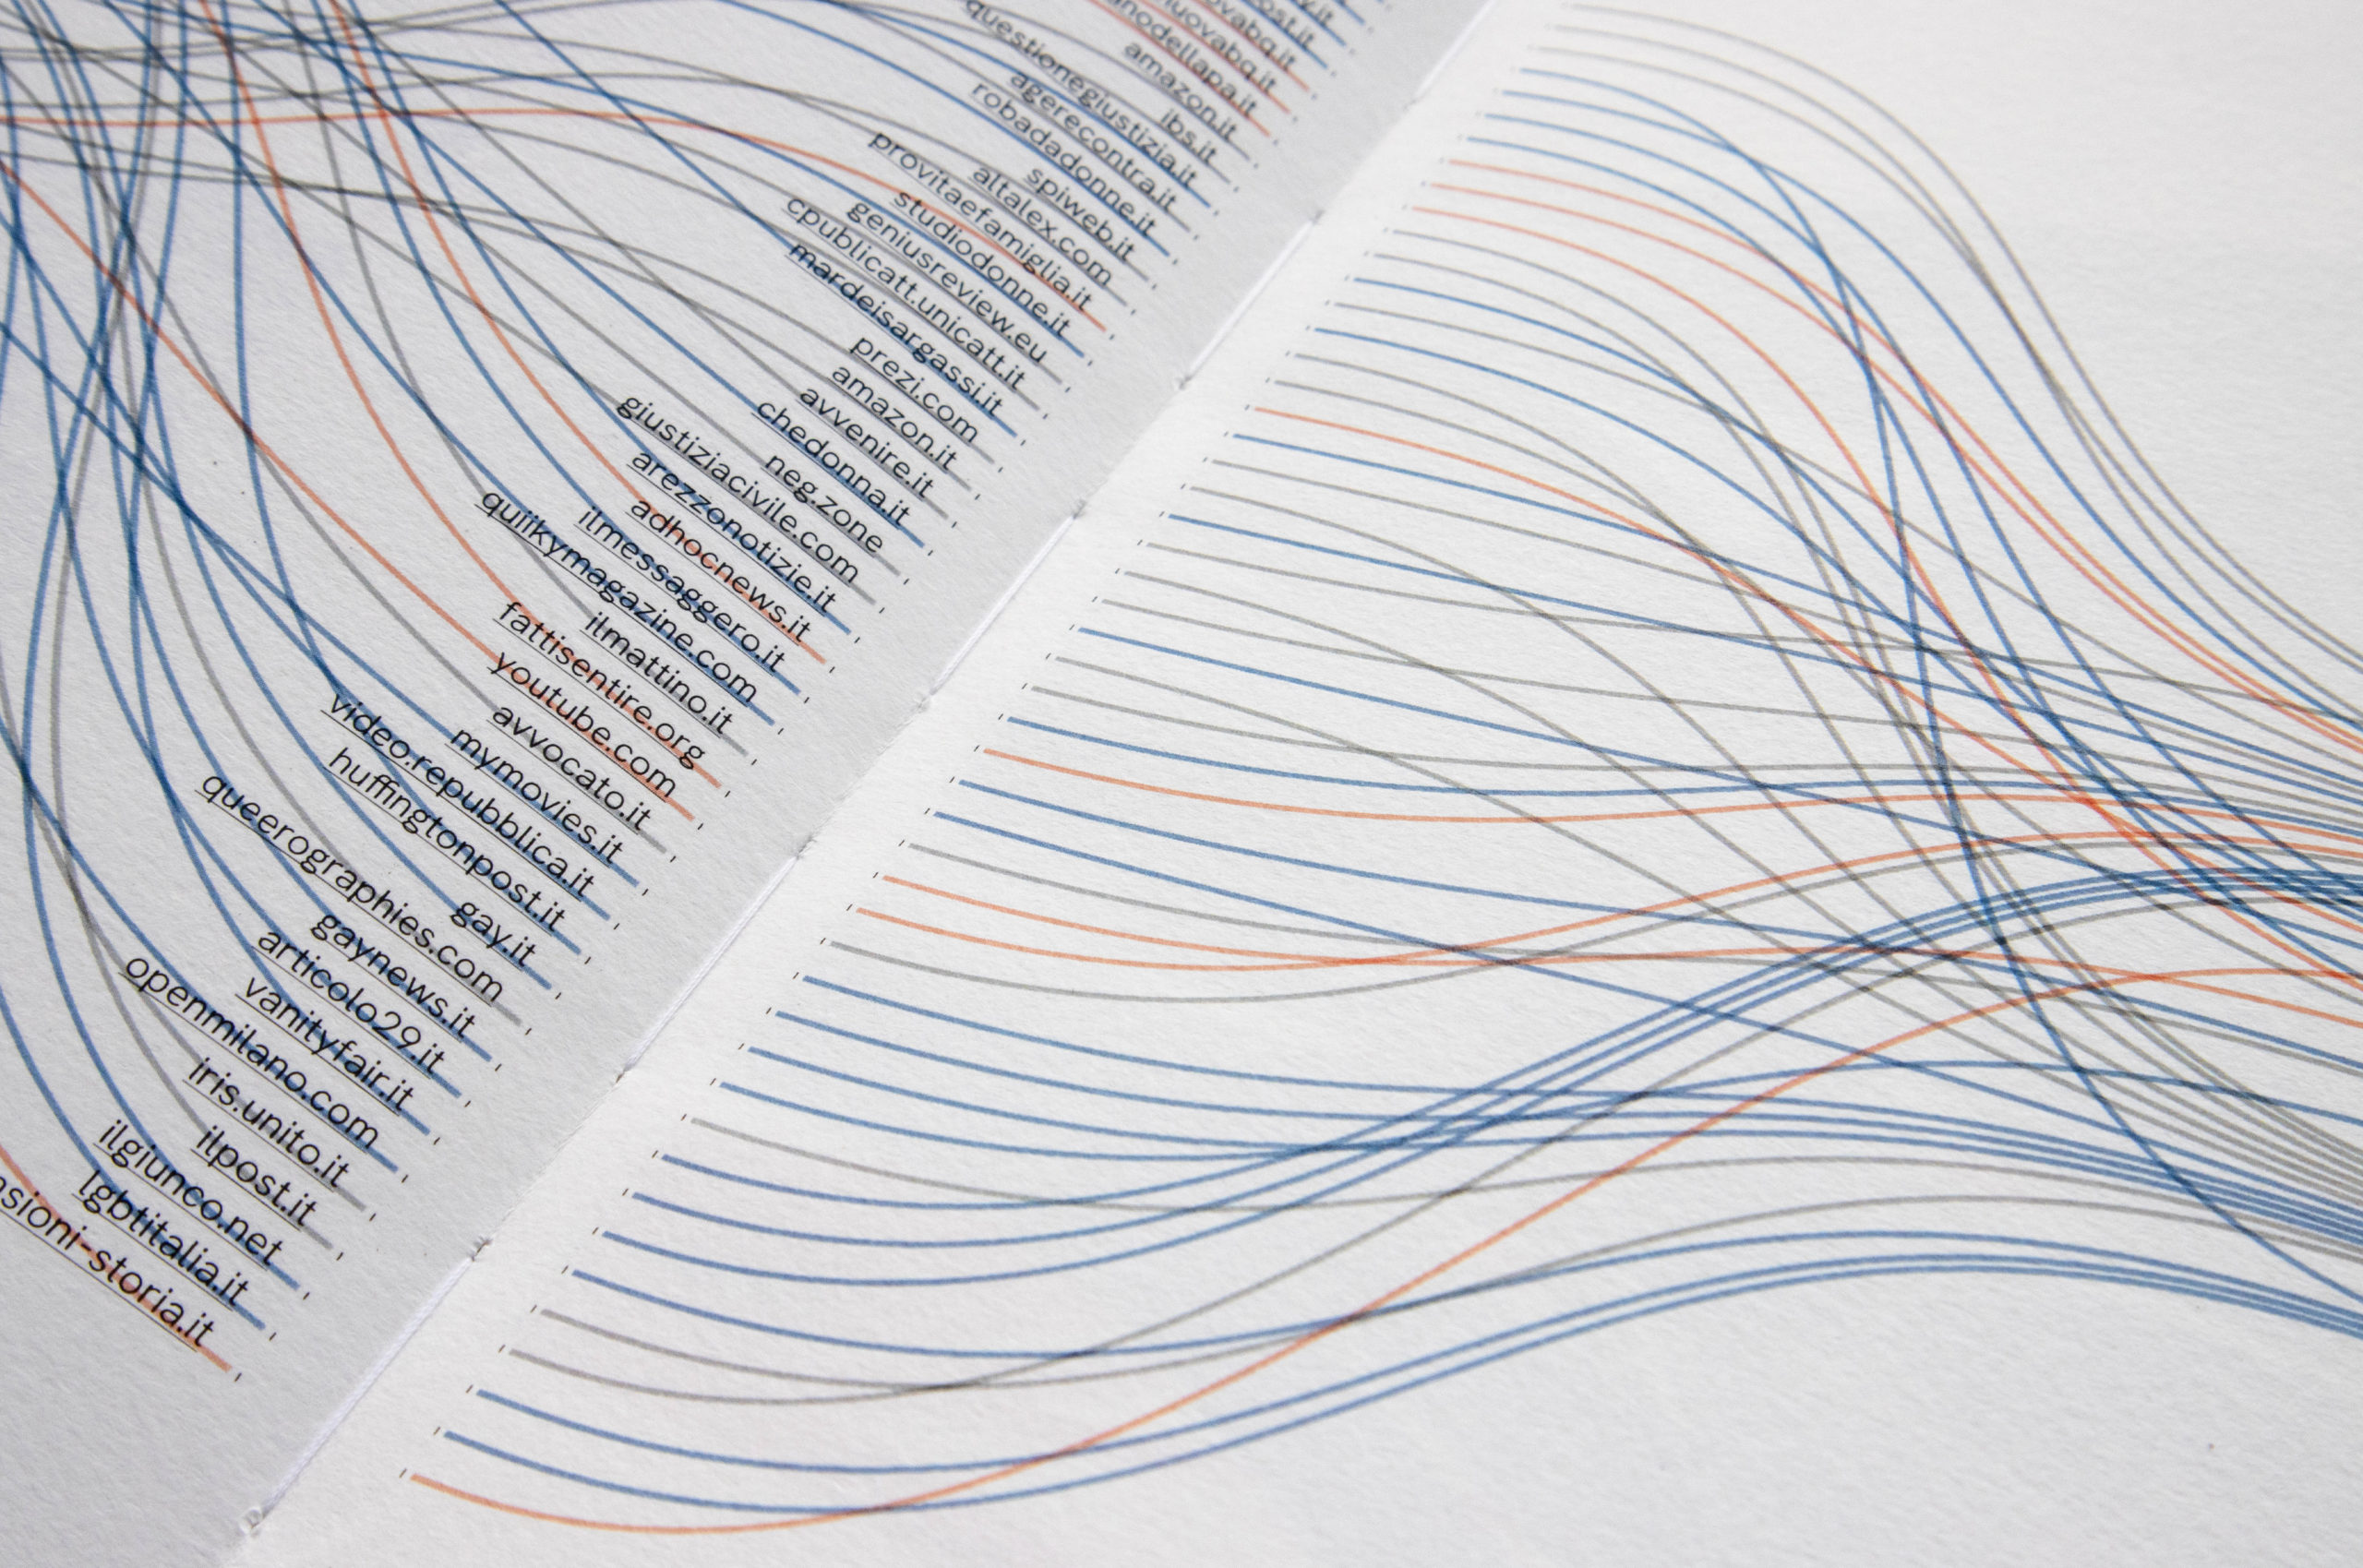 amazon.it
ibs.it
questionegiustizia.it
agerecontra.it
robadadonne.it
spiweb.it
altalex.com
provitaefamiglia.it
studiodonne.it
geniusreview.eu
cpublicatt.unicatt.it
mardeisargassi.it
prezi.com
amazon.it
avvenire.it
chedonna.it
neg.zone
giustiziacivile.com
arezzonotizie.it
adhocnews.it
ilmessaggero.it
quiikymagazine.com
ilmattino.it
fattisentire.org
youtube.com
avvocato.it
mymovies.it
video.repubblica.it
huffingtonpost.it
gay.it
queerographies.com
gaynews.it
articolo29.it
vanityfair.it
openmilano.com
iris.unito.it
ilpost.it
ilgiunco.net
lgbtitalia.it
nsioni-storia.it